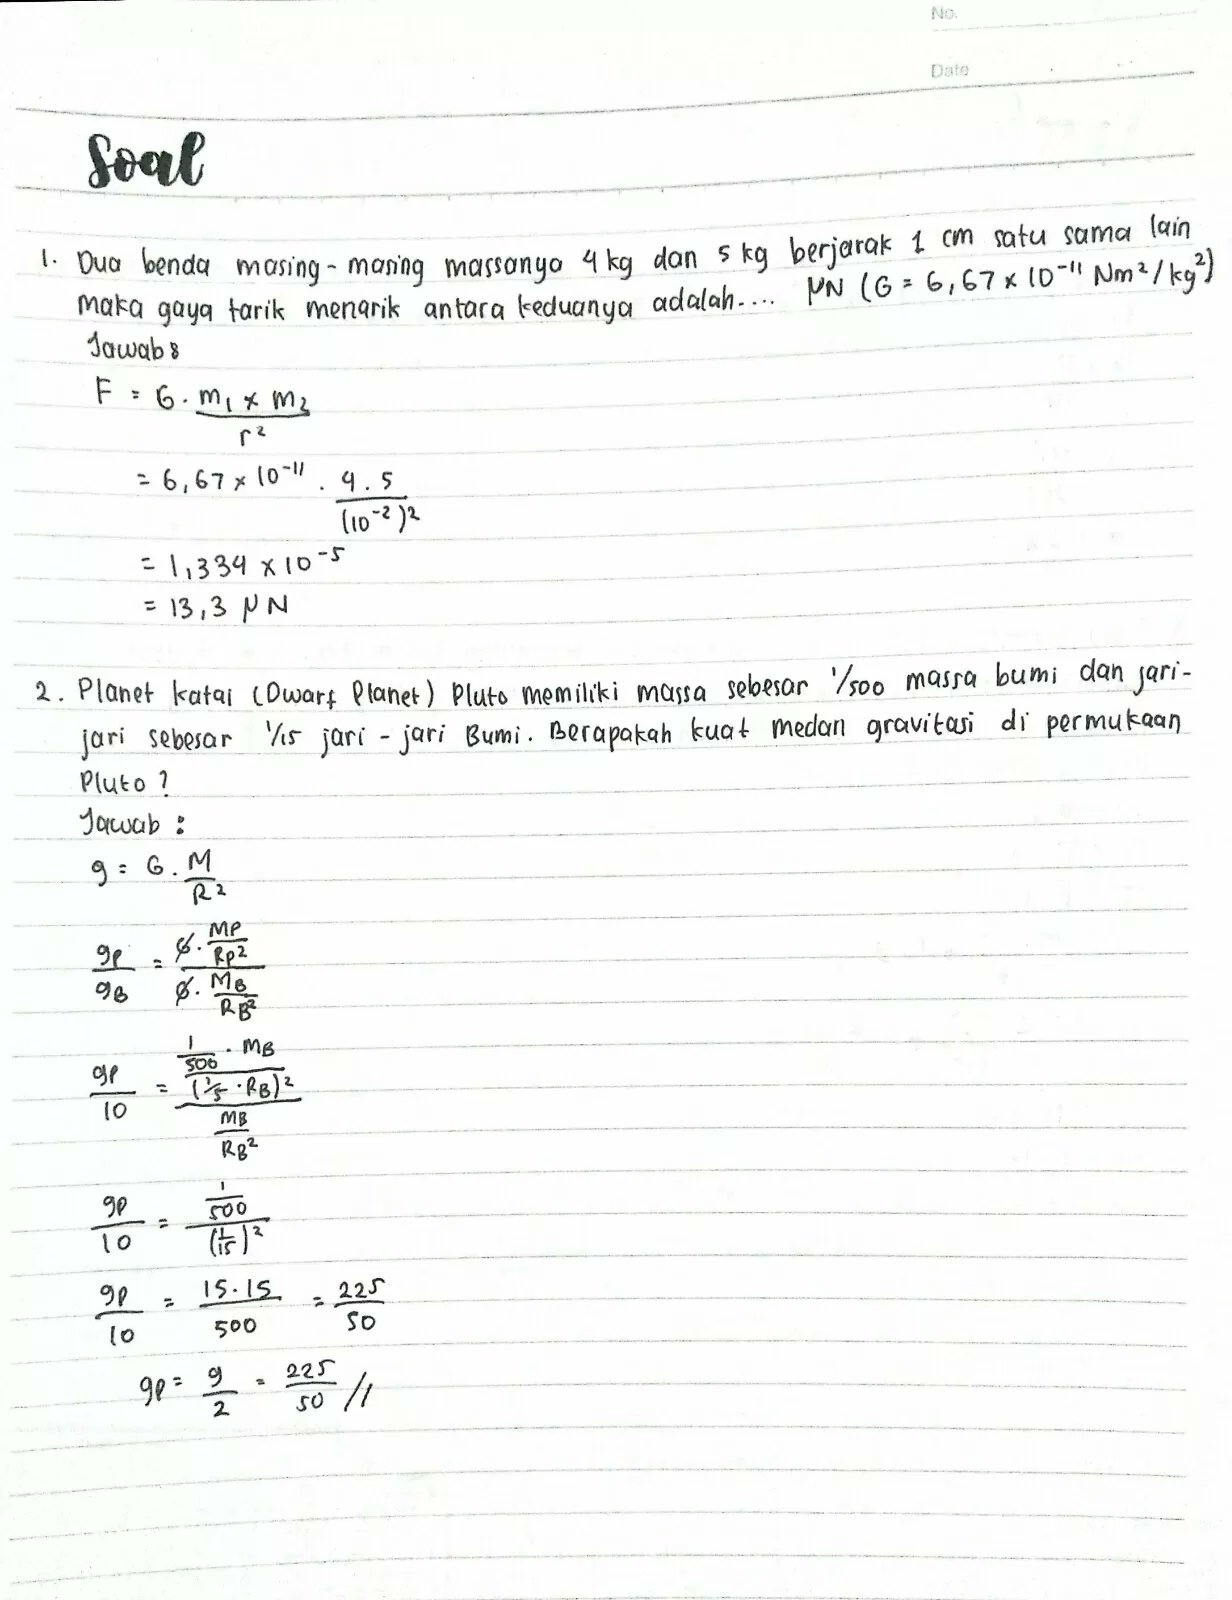 No.
Date
Soal
1. Dua benda masing-masing massanya 4 kg dan 5 kg berjarak 1 cm satu sama lain
maka gaya tarik menarik antara keduanya adalah.... μN (G = 6,67 x 10⁻¹¹ Nm²/kg²)
Jawab :
F = G . m₁ x m₂ / r²
= 6,67 x 10⁻¹¹ . 4 . 5 / (10⁻²)²
= 1,334 x 10⁻⁵
= 13,3 μN
2. Planet katai (Dwarf Planet) Pluto memiliki massa sebesar 1/500 massa bumi dan jari-
jari sebesar 1/15 jari - jari Bumi. Berapakah kuat medan gravitasi di permukaan
Pluto ?
Jawab :
g = G . M / R²
gP / gB = (G . MP / RP²) / (G . MB / RB²)
gP / 10 = (1/500 . MB / (1/5 . RB)²) / (MB / RB²)
gP / 10 = (1/500) / (1/15)²
gP / 10 = 15 . 15 / 500 = 225 / 50
gP = 9 / 2 = 225 / 50 //